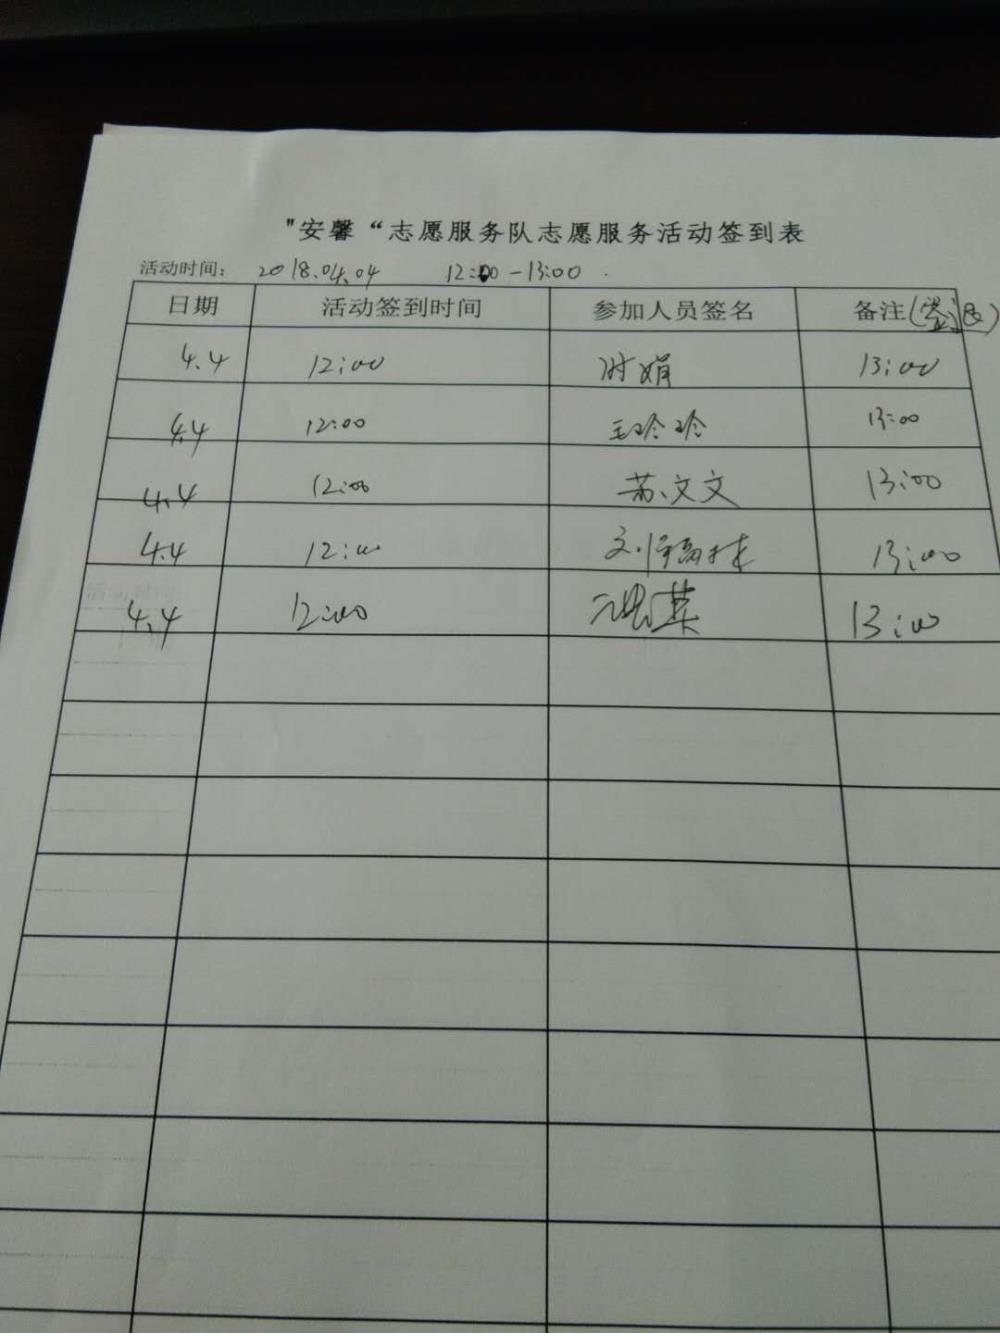 "安馨“志愿服务队志愿服务活动签到表
活动时间： 2018.04.04 12:00-13:00
日期 活动签到时间 参加人员签名 备注(签退)
4.4 12:00 时娟 13:00
4.4 12:00 王玲玲 13:00
4.4 12:00 苏文文 13:00
4.4 12:00 13:00
4.4 12:00 13:00